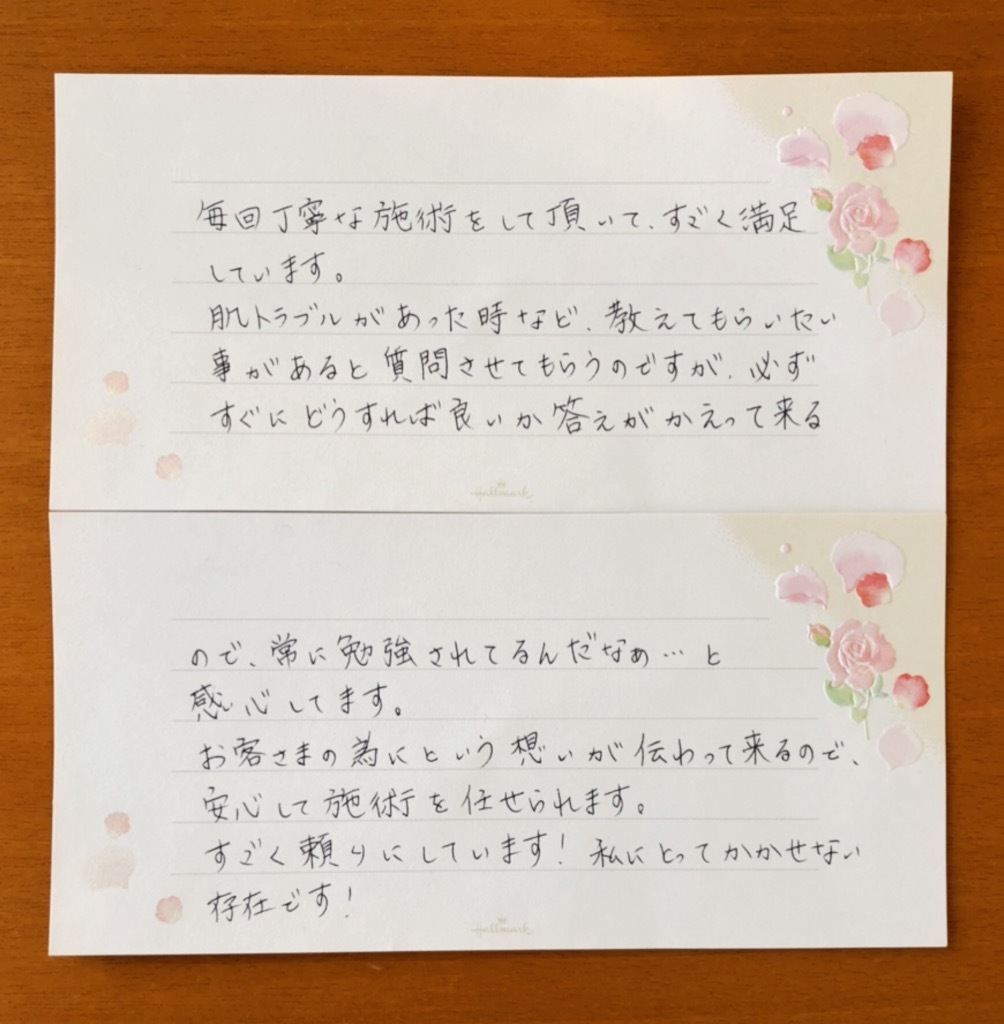 毎回丁寧な施術をして頂いて、すごく満足
しています。
肌トラブルがあった時など、教えてもらいたい
事があると質問させてもらうのですが、必ず
すぐにどうすれば良いか答えがかえって来る
Hallmark
ので、常に勉強されてるんだなぁ…と
感心してます。
お客さまの為にという想いが伝わって来るので、
安心して施術を任せられます。
すごく頼りにしています！私にとってかかせない
存在です！
Hallmark